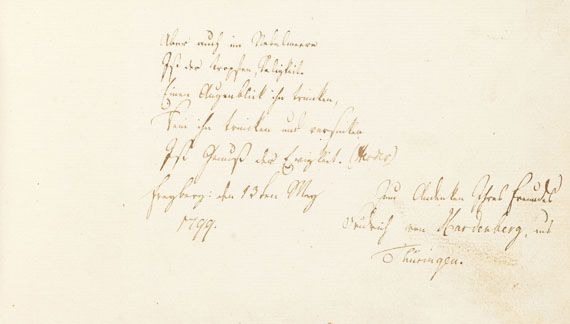 Aber auch im Nebelmeere
Ist der Tropfen, Seligkeit.
Einen Augenblick ihn trinken,
Rein ihn trinken und versinken
Ist Genuß der Ewigkeit. (Herder)
Freyberg: den 13ten May
1799.
zum Andenken Ihres Freundes
Friedrich von Hardenberg, aus
Thüringen.